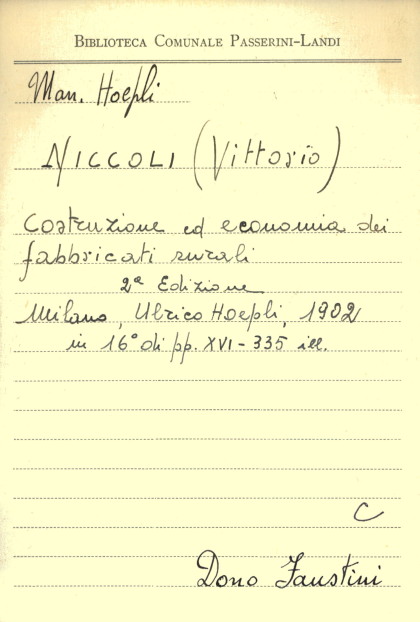 BIBLIOTECA COMUNALE PASSERINI-LANDI
Man. Hoepli
NICCOLI (Vittorio)
Costruzione ed economia dei
fabbricati rurali
2a Edizione
Milano, Ulrico Hoepli, 1902
in 16° di pp. XVI-335 ill.
C
Dono Faustini